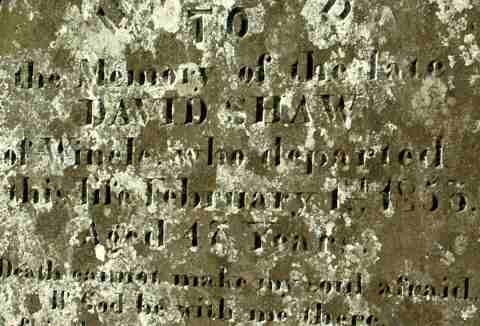 TO
the Memory of the late
DAVID SHAW
of Wincle, who departed
this life February 1st 1855.
Aged 47 Years.
Death cannot make my soul afraid,
If God be with me there